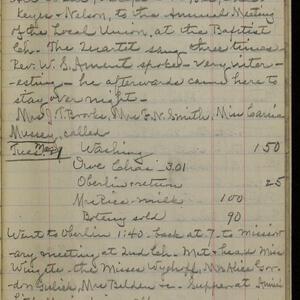 Keyes & Nelson, to the Annual Meeting
of the Local Union, at the Baptist
Ch. The Quartet sang three times
Rev. W. S. Ament spoke - Very inter-
-esting - he afterwards came here to
stay over night -
Mrs J. T. Brooks, Mrs E. N. Smith, Miss Carrie
Mussey, called
Tues. May Washing 150
Owe Chai 3.01
Oberlin return 25
Mrs Rice - milk 100
Botany sold 90
Went to Oberlin 1:40 - back at 7 - to Mission-
ary meeting at 2nd Ch. Met & heard Miss
the Misses Wyckoff, Mrs Rice
Mrs Belden - Supper at